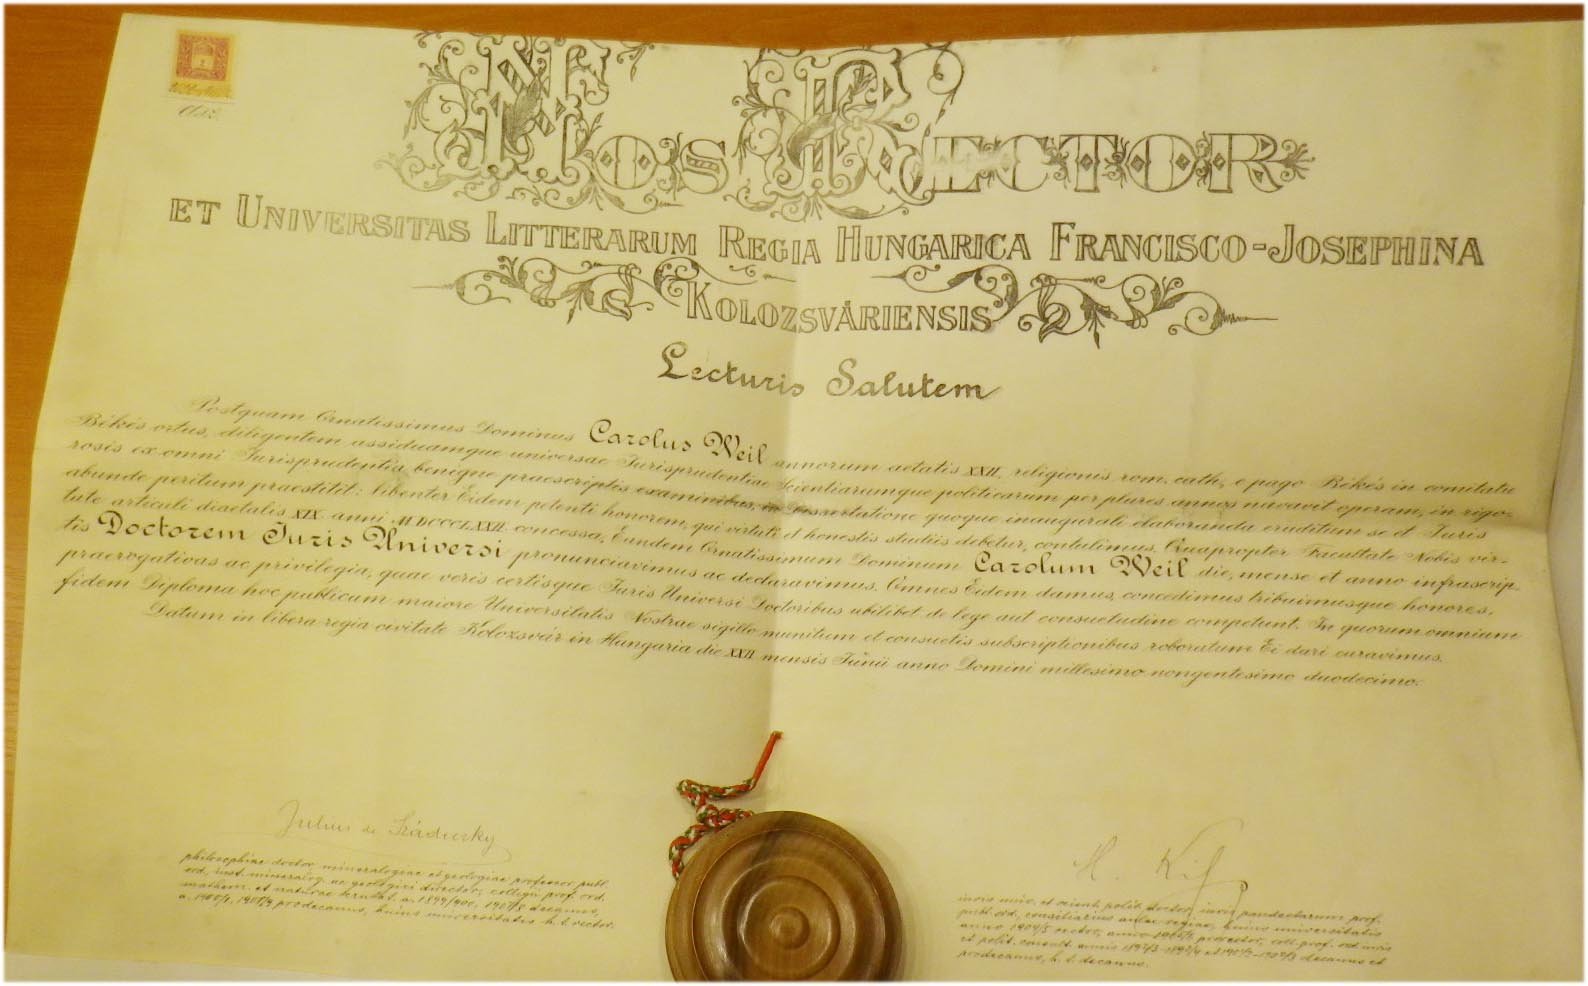 Nos Rector
et Universitas Litterarum Regia Hungarica Francisco-Josephina
Kolozsváriensis
Lecturis Salutem
Postquam Ornatissimus Dominus Carolus Weil annorum aetatis XXII, religionis rom. cath., e pago Békés in comitatu
Békés ortus, diligentem assiduamque universae Jurisprudentiae Scientiarumque politicarum per plures annos navavit operam, in rigo-
rosis ex omni Jurisprudentia benigne praescriptis examinibus, in Dissertatione quoque inaugurali elaboranda eruditum se et Juris
abunde peritum praestitit: libenter Eidem petenti honorem, qui virtuti et honestis studiis debetur, contulimus. Quapropter Facultate Nobis vir-
tute articuli diaetalis XIX. anni MDCCCLXXII concessa, Eundem Ornatissimum Dominum Carolum Weil die, mense et anno infrascrip-
tis Doctorem Juris Universi pronunciavimus ac declaravimus. Omnes Eidem damus, concedimus tribuimusque honores,
praerogativas ac privilegia, quae veris certisque Juris Universi Doctoribus ubilibet de lege aut consuetudine competunt. In quorum omnium
fidem Diploma hoc publicum maiore Universitatis Nostrae sigillo munitum et consuetis subscriptionibus roboratum Ei dari curavimus.
Datum in libera regia civitate Kolozsvár in Hungaria die XXII mensis Junii anno Domini millesimo nongentesimo duodecimo.
Julius de Szádeczky
philosophiae doctor, mineralogiae et geologiae professor publ.
ord., inst. mineralog. ac geologici director, collegii prof. ord.
mathem. et naturae scrutat. a. 1899/900, 1907/8 decanus,
prodecanus, huius universitatis h. t. rector.
iuris univ. et scient. polit. doctor, iuris pandectarum prof.
publ. ord., consiliarius aulae regiae, huius universitatis
anno 1904/5 rector, anno prorector, coll. prof. ord. iuris
et polit. consult. annis decanus et
prodecanus, h. t. decanus.